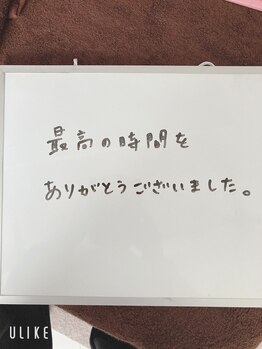 最高の時間を
ありがとうございました。
ULIKE